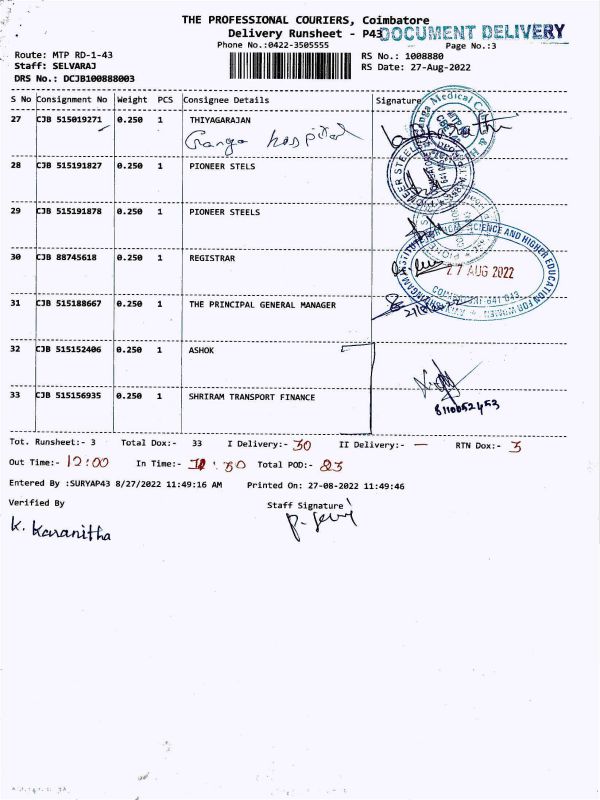 THE PROFESSIONAL COURIERS, Coimbatore
Delivery Runsheet - P43
DOCUMENT DELIVERY
Phone No.:0422-3505555
Page No.:3
Route: MTP RD-1-43
RS No.: 1008880
Staff: SELVARAJ
RS Date: 27-Aug-2022
DRS No.: DCJB100888003
S No Consignment No Weight PCS Consignee Details Signature
27 CJB 515019271 0.250 1 THIYAGARAJAN
Ganga hospital
28 CJB 515191827 0.250 1 PIONEER STELS
29 CJB 515191878 0.250 1 PIONEER STEELS
30 CJB 88745618 0.250 1 REGISTRAR
27 AUG 2022
31 CJB 515188667 0.250 1 THE PRINCIPAL GENERAL MANAGER
32 CJB 515152406 0.250 1 ASHOK
33 CJB 515156935 0.250 1 SHRIRAM TRANSPORT FINANCE
8110052453
Tot. Runsheet:- 3 Total Dox:- 33 I Delivery:- 30 II Delivery:- — RTN Dox:- 3
Out Time:- 12:00 In Time:- Total POD:- 23
Entered By :SURYAP43 8/27/2022 11:49:16 AM Printed On: 27-08-2022 11:49:46
Verified By Staff Signature
K. Karanitha